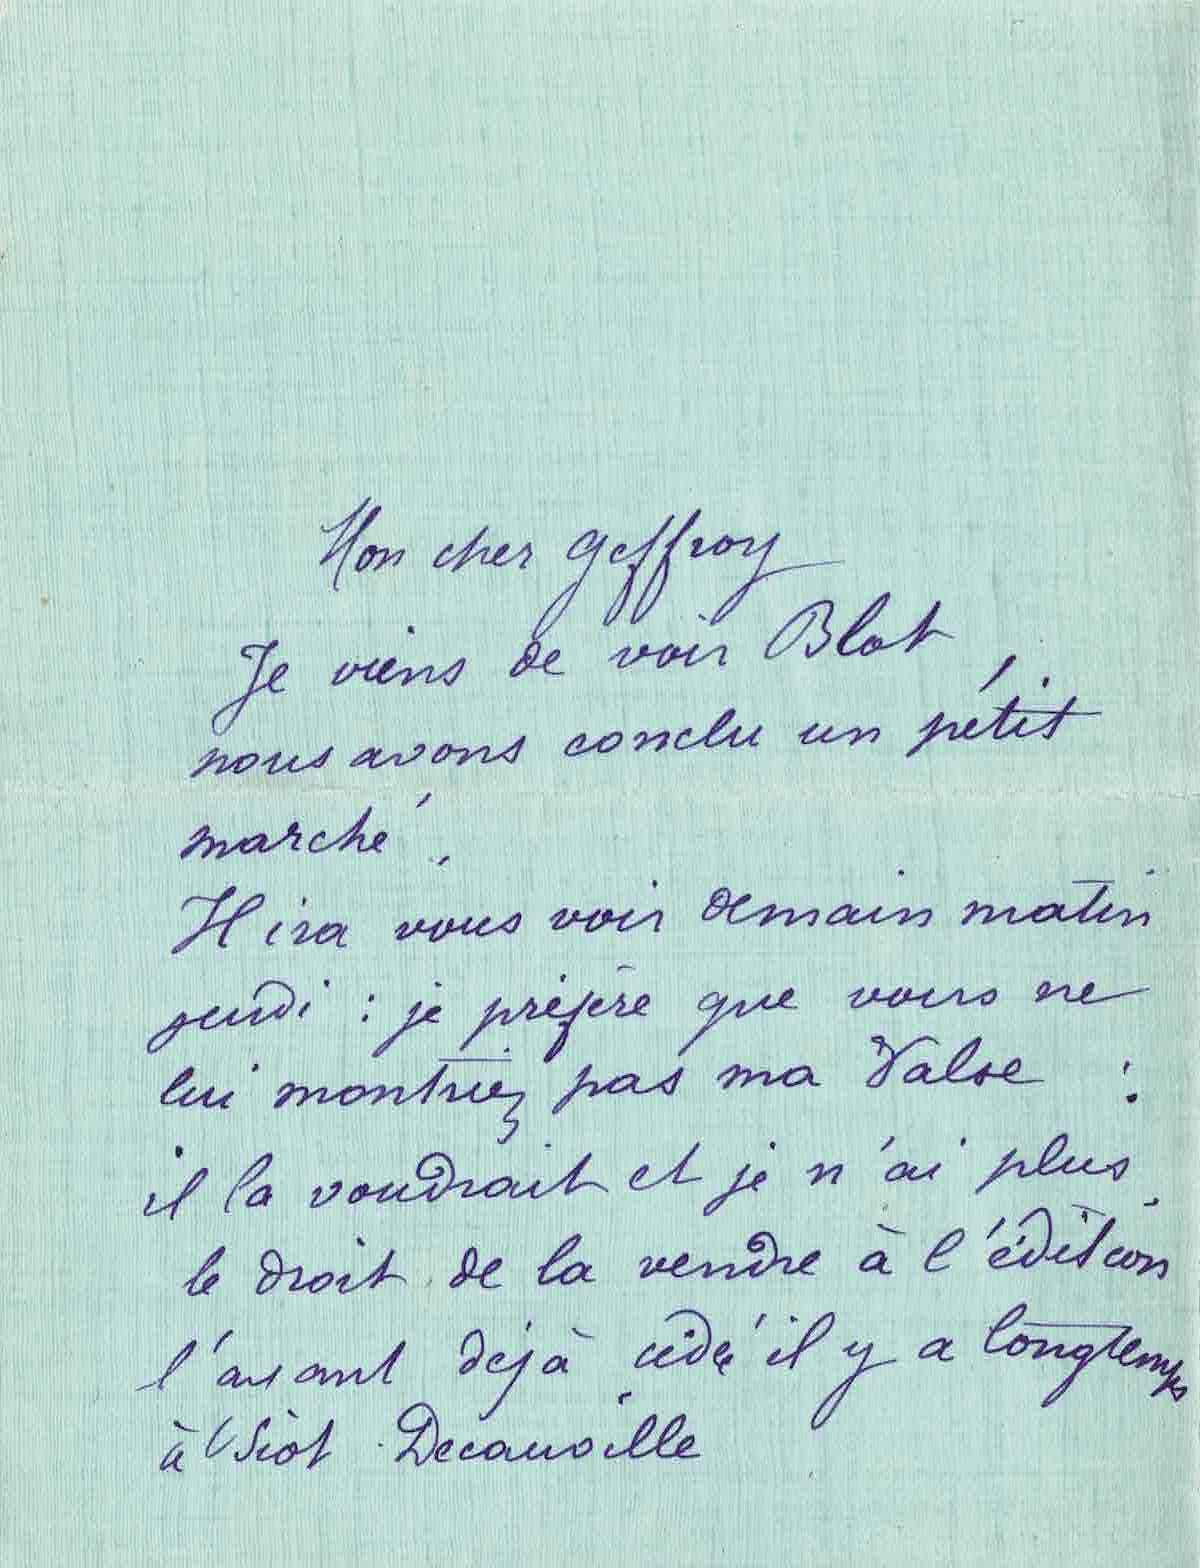 Mon cher Geffroy
Je viens de voir Blot,
nous avons conclu un pétit
marché.
Il ira vous voir demain matin
jeudi : je préfère que vous ne
lui montriez pas ma Valse :
il la voudrait et je n'ai plus
le droit de la vendre à l'édition
l'ayant déjà cédé il y a longtemps
à Siot Decauville